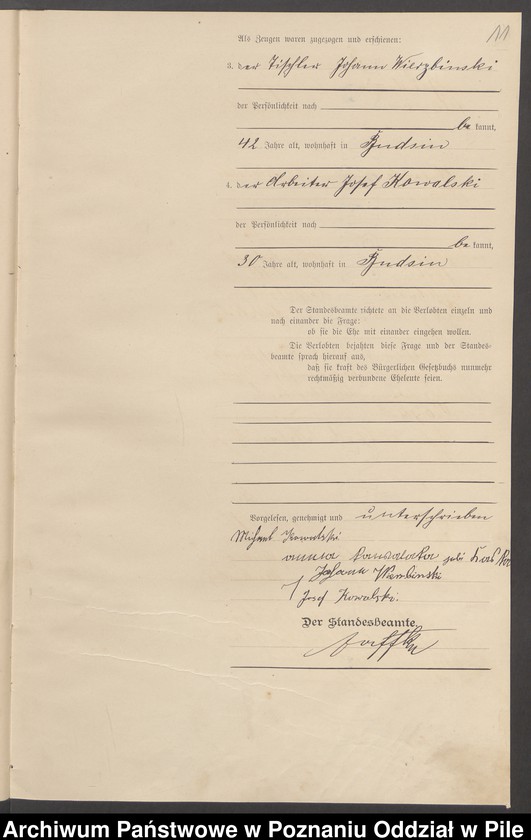 11
Als Zeugen waren zugezogen und erschienen:
3. der Tischler Johann Wierzbinski
der Persönlichkeit nach
be kannt,
42 Jahre alt, wohnhaft in Budsin
4. der Arbeiter Josef Kowalski
der Persönlichkeit nach
be kannt,
30 Jahre alt, wohnhaft in Budsin
Der Standesbeamte richtete an die Verlobten einzeln und
nach einander die Frage:
ob sie die Ehe mit einander eingehen wollen.
Die Verlobten bejahten diese Frage und der Standes-
beamte sprach hierauf aus,
daß sie kraft des Bürgerlichen Gesetzbuchs nunmehr
rechtmäßig verbundene Eheleute seien.
Vorgelesen, genehmigt und unterschrieben
Kowalski
Johann
Josef Kowalski.
Der Standesbeamte.
Archiwum Państwowe w Poznaniu Oddział w Pile